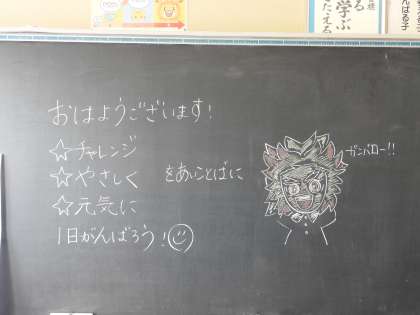 おはようございます!
☆チャレンジ
☆やさしく をあいことばに
☆元気に
1日がんばろう!
ガンバロー!!
学ぶ